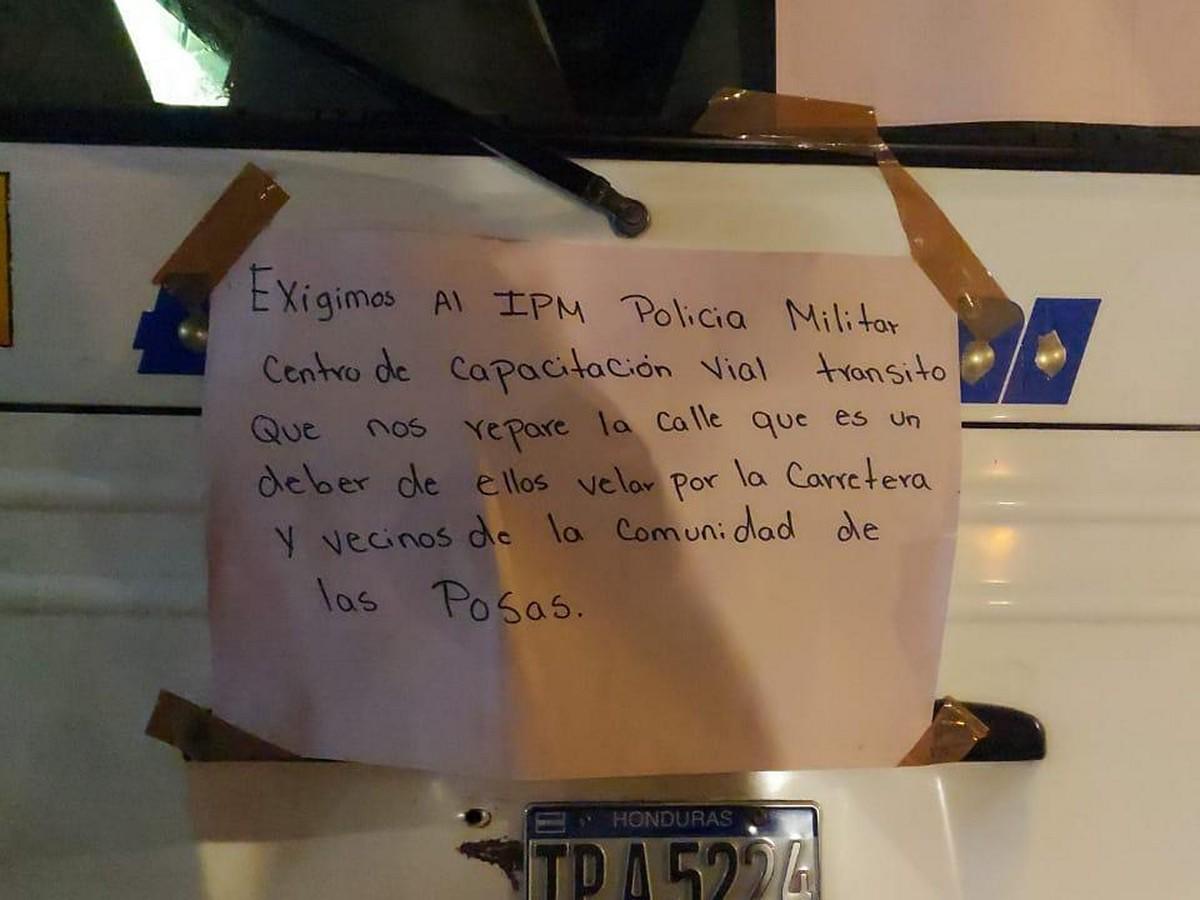 Exigimos Al IPM Policia Militar
Centro de Capacitación Vial transito
Que nos repare la calle que es un
deber de ellos velar por la Carretera
y vecinos de la Comunidad de
las Posas.
HONDURAS
TPA5224